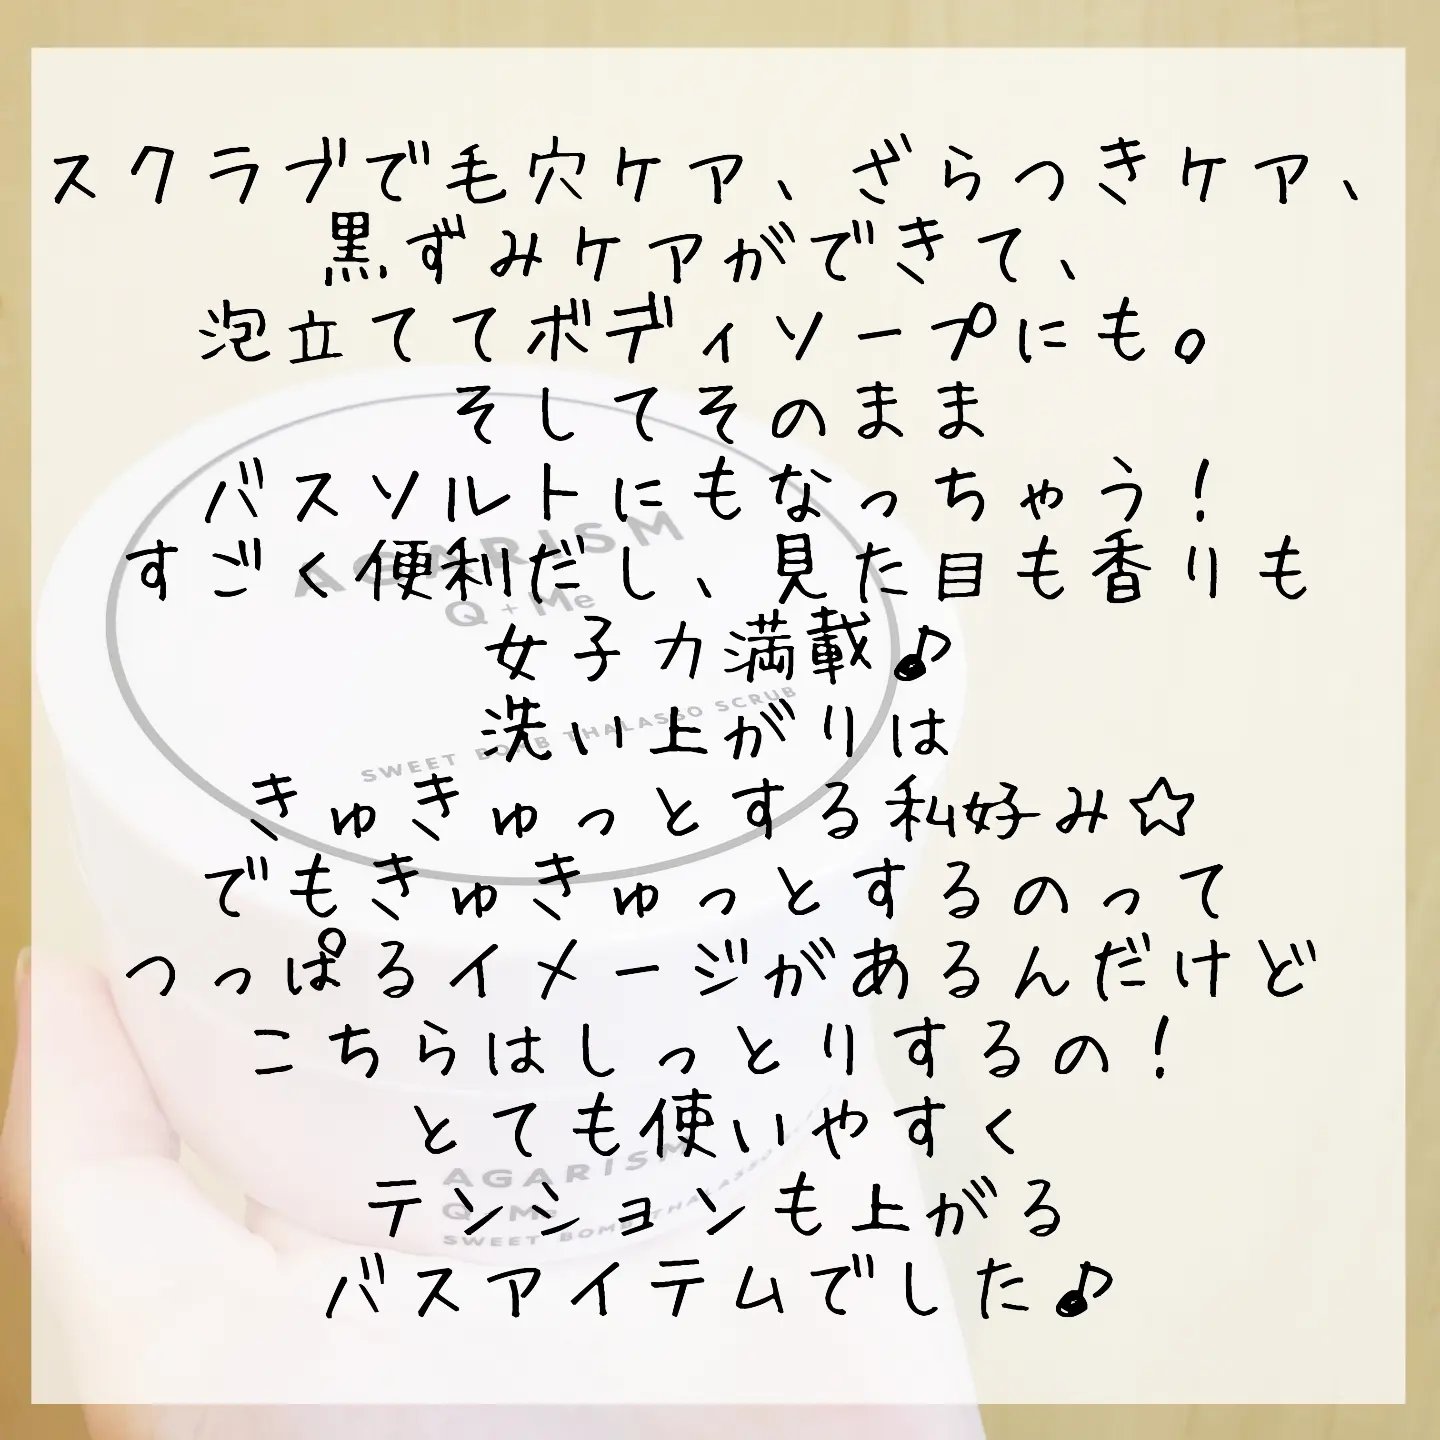 スクラブで毛穴ケア、ざらつきケア、
黒ずみケアができて、
泡立ててボディソープにも。
そしてそのまま
バスソルトにもなっちゃう！
すごく便利だし、見た目も香りも
女子力満載♪
洗い上がりは
きゅきゅっとする私好み☆
でもきゅきゅっとするのって
つっぱるイメージがあるんだけど
こちらはしっとりするの！
とても使いやすく
テンションも上がる
バスアイテムでした♪
AGARISM
Q + Me
SWEET BOMB THALASSO SCRUB
AGARISM
Q + Me
SWEET BOMB THALASSO